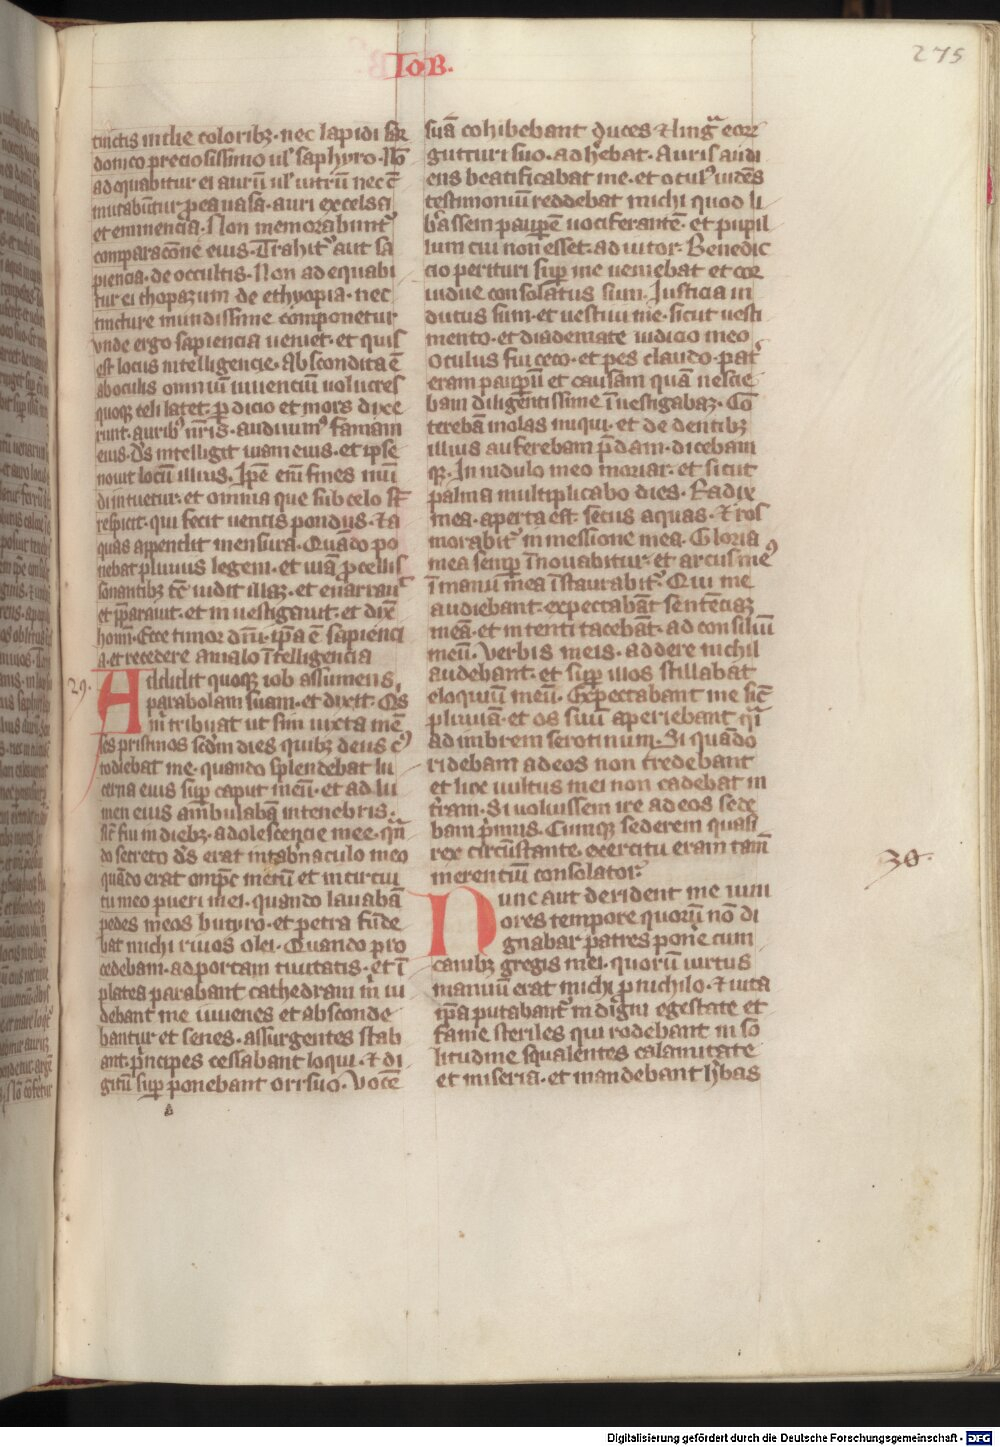 275
IOB.
tinctis indie coloribꝫ · nec lapidi sar
donico preciosissimo ul̕ saphyro · Nō
adequabitur ei aurū ul̕ uitrū nec cō
mutabūtur ꝓea uasa · auri excelsa
et eminencia · Non memorabunt᷑
comparacōne eius · Trahit᷑ aut sa
piencia · de occultis · Non adequabi
tur ei thopazium de ethyopia · nec
tincture mundissime componetur
vnde ergo sapiencia ueniet · et quis
est locus intelligencie · Abscondita ē
aboculis omniū uiuenciū uolucres
quoqꝫ celi latet · ꝑdicio et mors dixe
runt · auribꝰ nr̄is · audiuimꝰ famam
eius · Ds̄ intelligit uiam eius · et ipse
nouit locū illius · Ip̄e eni fines mūi
di intuetur · et omnia que sub celo st̄
respicit · qui fecit uentis pondus · ⁊ a
quas appendit mensura · Quādo po
nebat pluuiis legem · et uiā ꝓcellis
sonantibꝫ tē uidit illaꝫ · et enarrauit
et p̄parauit · et inuestigauit · et dixē
homi · Ecce timor dn̄i · ip̄a ē sapienci
a · et recedere amalo ītelligencia
29.
Addidit quoqꝫ iob assumens
parabolam suam · et dixit · Qis
m̄ tribuat ut sim iuxta mē
ses pristinos scd̄m dies quibꝫ deus cꝰ
todiebat me · quando splendebat lu
cerna eius suꝑ caput meū · et ad lu
men eius ambulabā intenebris ·
sic̄ fui in diebꝫ · adolescencie mee · qn̄
do secreto ds̄ erat intab̄naculo meo
quādo erat omp̄c mecū et incircui
tu meo pueri mei · quando lauabā
pedes meos butyro · et petra fūde
bat michi riuos olei · Quando pro
cedebam · ad portam ciuitatis · et ī
platea parabant cathedram m̄ ui
debant me iuuenes et absconde
bantur et senes · assurgentes stab
ant · p̄ncipes cessabant loqui · ⁊ di
gitū suꝑ ponebant ori suo · Vocē
suā cohibebant duces ⁊ linḡa eoꝝ
gutturi suo · adh̄ebat · Auris audi
ens beatificabat me · et oculꝰ uidēs
testimoniū reddebat michi quod li
b̄assem pauꝑem uociferantē · et pupil
lum cui non esset · adiutor · Benedic
cio perituri suꝑ me ueniebat et cor
uidue consolatus sum · Iusticia in
dutus sum · et uestiui me · sicut uesti
mento · et diademate iudicio meo
Oculus fui ceco · et pes claudo · pat᷑
eram pauꝑū et causam quā nescie
bam diligentissime īuestigabaꝫ · Cō
terebā molas iniqui · et de dentibꝫ
illius auferebam p̄dam · dicebam
qꝫ · In nidulo meo moriar · et sicut
palma multiplicabo dies · Radix
mea · aperta est · secus aquas · ⁊ ros
morabit᷑ in messione mea · Gloria
mea semꝑ īnouabitur · et arcus meꝰ
ī manu mea īstaurabit᷑ · Qui me
audiebant · expectabāt sentēciaꝫ
meā · et intenti tacebāt · ad consiliū
meū · Verbis meis · addere nichil
audebant · et suꝑ illos stillabat
eloquiū meū · Expectabant me sic̄
pluuiā · et os suū aperiebant q̄i
ad imbrem serotinum · Si quādo
ridebam adeos non credebant
et lixe uultus mei non cadebat in
t̄ram · Si uoluissem ire ad eos sede
bam p̄mus · Cumqꝫ sederem quasi
rex circūstante · exercitu eram tam̄
merentiū consolator ·
30.
Nunc aut derident me iuni
ores tempore quorū nō di
gnabar patres pone cum
canibꝫ gregis mei · quorū uirtus
manuū erat michi ꝓ nichilo · ⁊ uita
ip̄a putabant᷑ indigni egestate et
fame steriles qui rodebant in so
litudine squalentes calamitate
et miseria · et mandebant h̄bas
Digitalisierung gefördert durch die Deutsche Forschungsgemeinschaft - DFG